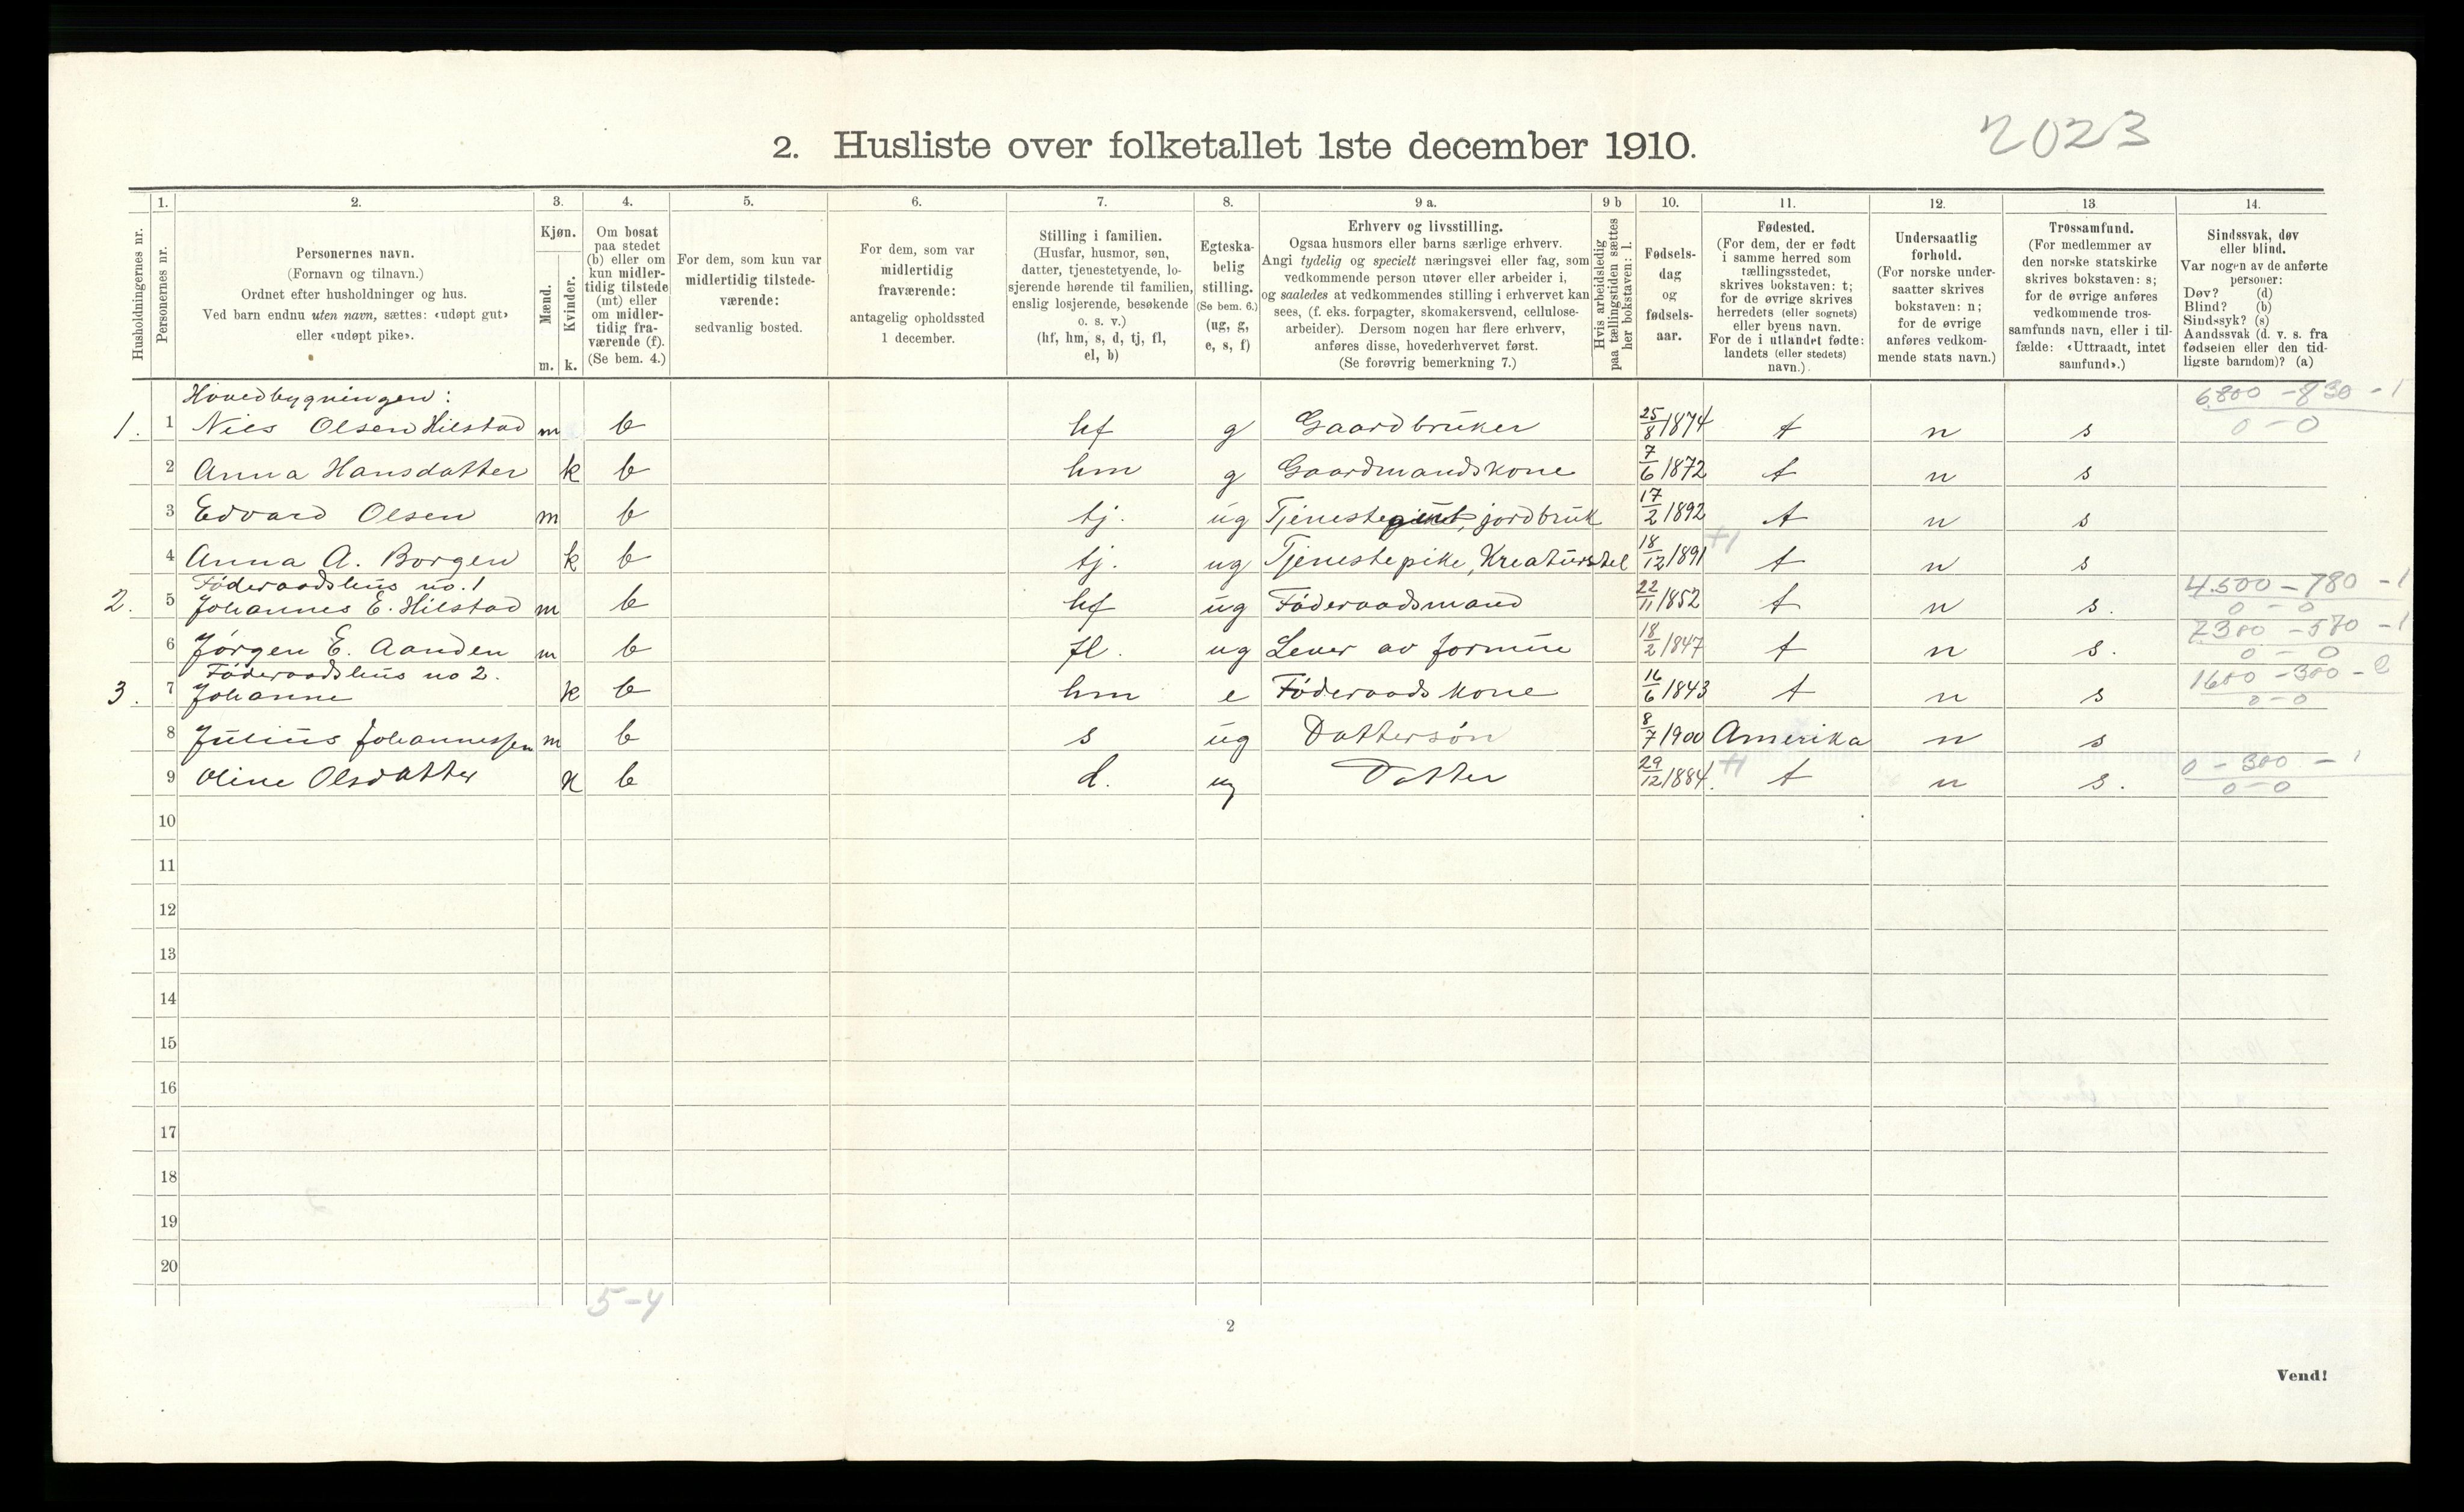 2023
2. Husliste over folketallet 1ste december 1910.
Husholdningernes nr.
1. Personernes nr.
2. Personernes navn.
(Fornavn og tilnavn.)
Ordnet efter husholdninger og hus.
Ved barn endnu uten navn, sættes: «udøpt gut»
eller «udøpt pike».
3. Kjøn.
Mænd. m.
Kvinder. k.
4. Om bosat
paa stedet
(b) eller om
kun midler-
tidig tilstede
(mt) eller
om midler-
tidig fra-
værende (f).
(Se bem. 4.)
5. For dem, som kun var
midlertidig tilstede-
værende:
sedvanlig bosted.
6. For dem, som var
midlertidig
fraværende:
antagelig opholdssted
1 december.
7. Stilling i familien.
(Husfar, husmor, søn,
datter, tjenestetyende, lo-
sjerende hørende til familien,
enslig losjerende, besøkende
o. s. v.)
(hf, hm, s, d, tj, fl,
el, b)
8. Egteska-
belig
stilling.
(Se bem. 6.)
(ug, g,
e, s, f)
9 a. Erhverv og livsstilling.
Ogsaa husmors eller barns særlige erhverv.
Angi tydelig og specielt næringsvei eller fag, som
vedkommende person utøver eller arbeider i,
og saaledes at vedkommendes stilling i erhvervet kan
sees, (f. eks. forpagter, skomakersvend, cellulose-
arbeider). Dersom nogen har flere erhverv,
anføres disse, hovederhvervet først.
(Se forøvrig bemerkning 7.)
9 b Hvis arbeidsledig
paa tællingstiden sættes
her bokstaven: l.
10. Fødsels-
dag
og
fødsels-
aar.
11. Fødested.
(For dem, der er født
i samme herred som
tællingsstedet,
skrives bokstaven: t;
for de øvrige skrives
herredets (eller sognets)
eller byens navn.
For de i utlandet fødte:
landets (eller stedets)
navn.)
12. Undersaatlig
forhold.
(For norske under-
saatter skrives
bokstaven: n;
for de øvrige
anføres vedkom-
mende stats navn.)
13. Trossamfund.
(For medlemmer av
den norske statskirke
skrives bokstaven: s;
for de øvrige anføres
vedkommende tros-
samfunds navn, eller i til-
fælde: «Uttraadt, intet
samfund».)
14. Sindssvak, døv
eller blind.
Var nogen av de anførte
personer:
Døv? (d)
Blind? (b)
Sindssyk? (s)
Aandssvak (d. v. s. fra
fødselen eller den tid-
ligste barndom)? (a)
Hovedbygningen: 6800 - 830 - 1
1. 1 Niels Olsen Hilstad m b hf g Gaardbruker 25/8 1874 t n s 0 - 0
2 Anna Hansdatter k b hm g Gaardmandskone 7/6 1872 t n s
3 Edvard Olsen m b tj. ug Tjenestegut, jordbruk 17/2 1892 t n s
4 Anna A. Borgen k b tj. ug Tjenestepike, Kreaturstel 18/12 1891 +1 t n s
Föderaadshus no. 1 4.500 - 780 - 1
2. 5 Johannes E. Hilstad m b hf ug Föderaadsmand 22/11 1852 t n s. 0 - 0
6 Jörgen E. Aanden m b fl. ug Lever av formue 18/2 1847 t n s. 7300 - 570 - 1 0 - 0
Föderaadshus no 2. 1600 - 300 - 2
3. 7 Johanne k b hm e Föderaadskone 16/6 1843 t n s 0 - 0
8 Julius Johannessen m b s ug Dattersön 8/7 1900 Amerika n s
9 Oline Olsdatter k b d. ug Datter 29/12 1884. +1 t n s. 0 - 300 - 1 0 - 0
10
11
12
13
14
15
16
17
18
19
20
5-4
2
Vend!